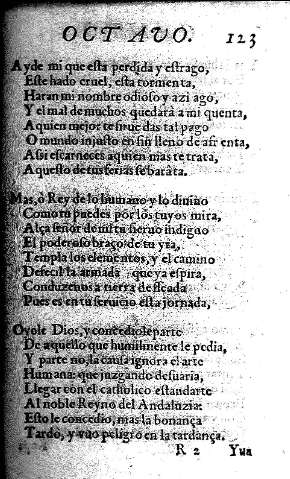 OCTAVO. 123
Ay de mi que esta perdida y estrago,
Este hado cruel, esta tormenta,
Haran mi nombre odioso y aziago,
Y el mal de muchos quedará a mi quenta,
A quien mejor te sirue das tal pago
O mundo injusto en fin lleno de afrenta,
Assi escarneces a quien mas te trata,
Aquesto de tus ferias se barata.
Mas, ò Rey de lo humano y lo diuino
Como tu puedes por los tuyos mira,
Alça señor de mi tu sieruo indigno
El poderoso braço de tu yra,
Templa los elementos, y el camino
De la armada que ya espira,
Conduzenos a tierra desseada
Pues es en tu seruicio esta jornada,
Oyole Dios, y concediole parte
De aquello que humilmente le pedia,
Y parte no, la causa ignora el arte
Humana: que juzgando desuaria,
Llegar con el catholico estandarte
Al noble Reyno del Andaluzia:
Esto le concedio, mas la bonança
Tardo, y vuo peligro en la tardança.
R 2 Yua